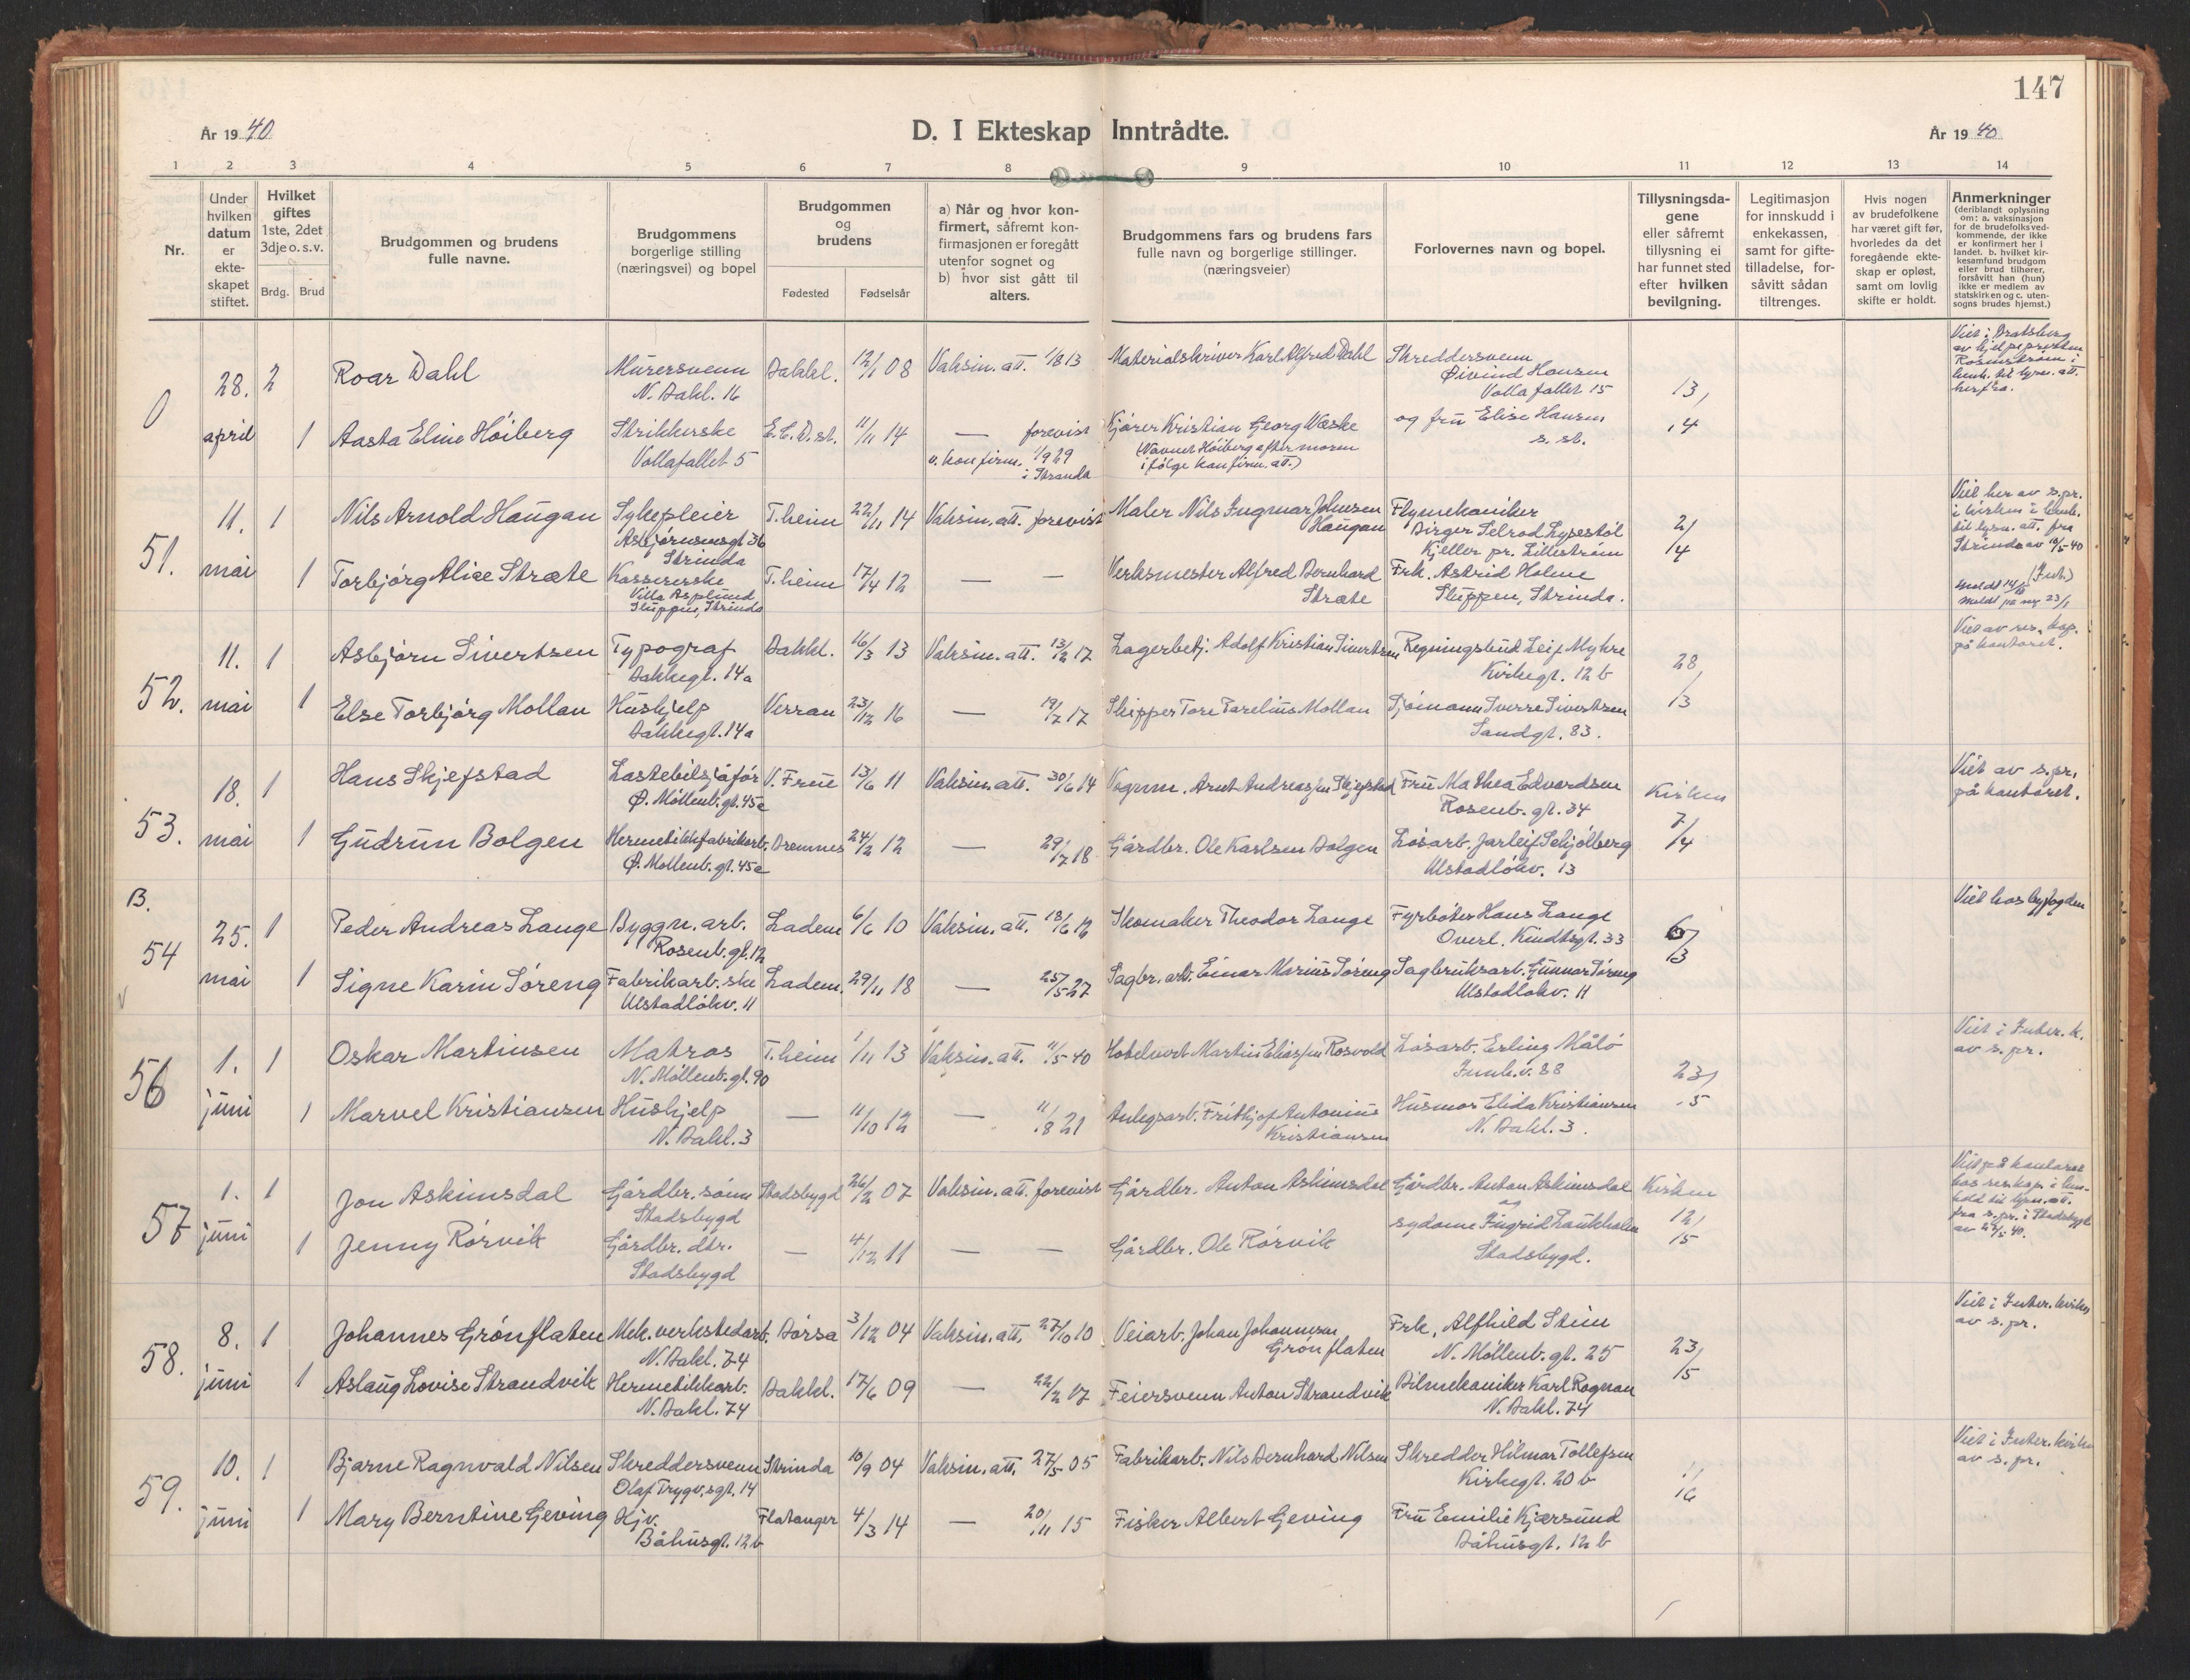 147
År 1940
D. I Ekteskap Inntrådte.
År 1940
1 2 3 4 5 6 7 8 9 10 11 12 13 14
Nr.
Under hvilken datum er ekte-skapet stiftet.
Hvilket giftes 1ste, 2det 3dje o. s. v.
Brdg. Brud
Brudgommen og brudens
fulle navne.
Brudgommens
borgerlige stilling
(næringsvei) og bopel
Brudgommen
og
brudens
Fødested Fødselsår
a) Når og hvor kon-
firmert, såfremt kon-
firmasjonen er foregått
utenfor sognet og
b) hvor sist gått til
alters.
Brudgommens fars og brudens fars
fulle navn og borgerlige stillinger.
(næringsveier)
Forlovernes navn og bopel.
Tillysningsda-
gene
eller såfremt
tillysning ei
har funnet sted
efter hvilken
bevilgning.
Legitimasjon
for innskudd i
enkekassen,
samt for gifte-
tilladelse, for-
såvitt sådan
tiltrenges.
Hvis nogen
av brudefolkene
har været gift før,
hvorledes da det
foregående ekte-
skap er opløst,
samt om lovlig
skifte er holdt.
Anmerkninger
(deriblandt oplysning
om: a. vaksinasjon
for de brudefolks ved-
kommende, der ikke
er konfirmert her i
landet. b. hvilket kir-
kesamfund brudgom
eller brud tilhører,
forsåvitt han (hun)
ikke er medlem av
statskirken og c. uten-
sogns brudes hjemst.)
0 28. april 2 Roar Dahl Murersvenn Bakkl. 12/1 08 Vaksin. att. 1/8 13 Materialskriver Karl Alfred Dahl Skreddersvenn
N. Bakl. 16 Øivind Hansen
Vollafallet 15 13/
1 Aasta Eline Höiberg Strikkerske E.C.D.st. 11/11 14 — forevist Kjörer Kristian Georg Wæske og fru Elise Hansen 14
Vollafallet 5 v. konfirm. 1/9 29 (Navnet Höiberg efter moren s. st.
i Strinda ifölge konfirm. att.)
Viet i Bratsberg
av hjelpepresten
Rosenström i
henh. til lysn. att.
herfra.
51. 11. mai 1 Nils Arnold Haugan Sykepleier T.heim 22/11 14 Vaksin. att. forevist Maler Nils Ingmar Johnsen Flymekaniker
Asbjörnsensgt 36 Haugan Birger Selrod Lysestöl 21/
Strinda Kjeller pr. Lilleström 14
1 Torbjörg Alice Stræte Kassererske T.heim 17/4 12 — — Verksmester Alfred Bernhard Frk. Astrid Holme
Villa Asplund Stræte Sluppen, Strinda.
Sluppen, Strinda
Viet her av s.pr.
i kirken i henh.
til lysn. att. fra
Strinda av 10/5 40
52. 11. mai 1 Asbjörn Sivertsen Typograf Bakkl. 16/3 13 Vaksin. att. 13/12 17 Lagerbetj. Adolf Kristian Sivertsen Regningsbud Leif Myhre 28/
Bakkegt. 14a Kirkegt. 12 b
1 Else Torbjörg Mollan Hushjelp Verran 23/12 16 — 19/7 17 Skipper Tore Torelius Mollan Sjömann Sverre Sivertsen 13
Bakkegt. 14a Sandgt. 83.
Viet av res. kap.
på kontoret.
53. 18. mai 1 Hans Skjefstad Lastebilsjåför V. Frue 13/6 11 Vaksin. att. 30/6 14 Vognm. Arnt Andreassen Skjefstad Fru Mathea Edvardsen Kirken
Ø. Möllenb. gt. 45c Rosenb. gt. 34 7/
1 Gudrun Bolgen Hermetikkfabrikarb. Bremnes 24/2 12 — 29/7 18 Gårdbr. Ole Karlsen Bolgen Lösarb. Jarleif Schjölberg 14
Ø. Möllenb. gt. 45c Ulstadlökv. 13
Viet av s.pr.
på kontoret.
B.
54 25. mai 1 Peder Andreas Lange Byggn. arb. Ladem. 6/6 10 Vaksin. att. 18/6 12 Skomaker Theodor Lange Fyrböter Hans Lange
Rosenb. gt. 12 Overl. Kindtsgt. 33
1 Signe Karin Söreng Fabrikarb. ske Ladem. 29/11 18 — 25/5 27 Sagbr. arb. Einar Marius Söreng Sagbruksarb. Gunnar Söreng
Ulstadlökv. 11 Ulstadlökv. 11
Viet hos byfogden
56 1. juni 1 Oskar Martinsen Matros T.heim 1/11 13 Vaksin. att. 11/5 40 Hotelvert Martin Eliassen Rosvold Lösarb. Erling Målö 23/
N. Möllenb. gt. 90 Innh. v. 88
1 Marvel Kristiansen Hushjelp — 11/10 12 — 11/8 21 Anlegsarb. Frithjof Antonius Husmor Elida Kristiansen 15
N. Bakl. 3 Kristiansen N. Bakl. 3.
Viet i Inter. k.
av s. pr.
57 1. juni 1 Jon Askimsdal Gårdbr. sönn Stadsbygd 26/2 07 Vaksin. att. forevist Gårdbr. Anton Askimsdal Gårdbr. Anton Askimsdal Kirken
Stadsbygd og 12/
1 Jenny Rörvik Gårdbr. dtr. — 4/12 11 — — Gårdbr. Ole Rörvik sydame Ingrid Laukholm 15
Stadsbygd Stadsbygd.
Viet på kontoret
hos reskap. i hen-
hold til lysn. att.
fra s. pr. i Stadsbygd
av 27/5 40.
58. 8. juni 1 Johannes Grönflaten Mek. verkstedarb. Börsa 3/12 04 Vaksin. att. 27/10 10 Veiarb. Johan Johannesen Frk. Alfhild Stein
N. Bakl. 74 Grönflaten N. Möllenb. gt. 25 23/
1 Aslaug Lovise Strandvik Hermetikkarb. Bakkl. 17/6 09 — 22/2 17 Feiersvenn Anton Strandvik Bilmekaniker Karl Rognan 15
N. Bakl. 74 N. Bakl. 74
Viet i Inter. kirken
av s. pr.
59. 10. juni 1 Bjarne Ragnvald Nilsen Skreddersvenn Strinda 10/9 04 Vaksin. att. 27/5 05 Fabrikarb. Nils Bernhard Nilsen Skredder Hilmar Tollefsen
Olaf Trygv.sgt. 14 Kirkegt. 20 b 1/
1 Mary Berntine Geving Hjv. Flatanger 4/3 14 — 20/11 15 Fisker Albert Geving Fru Emilie Kjærsund 16
Båhusgt. 12b Båhusgt. 12 b
Viet i Inter. kirken
av s. pr.